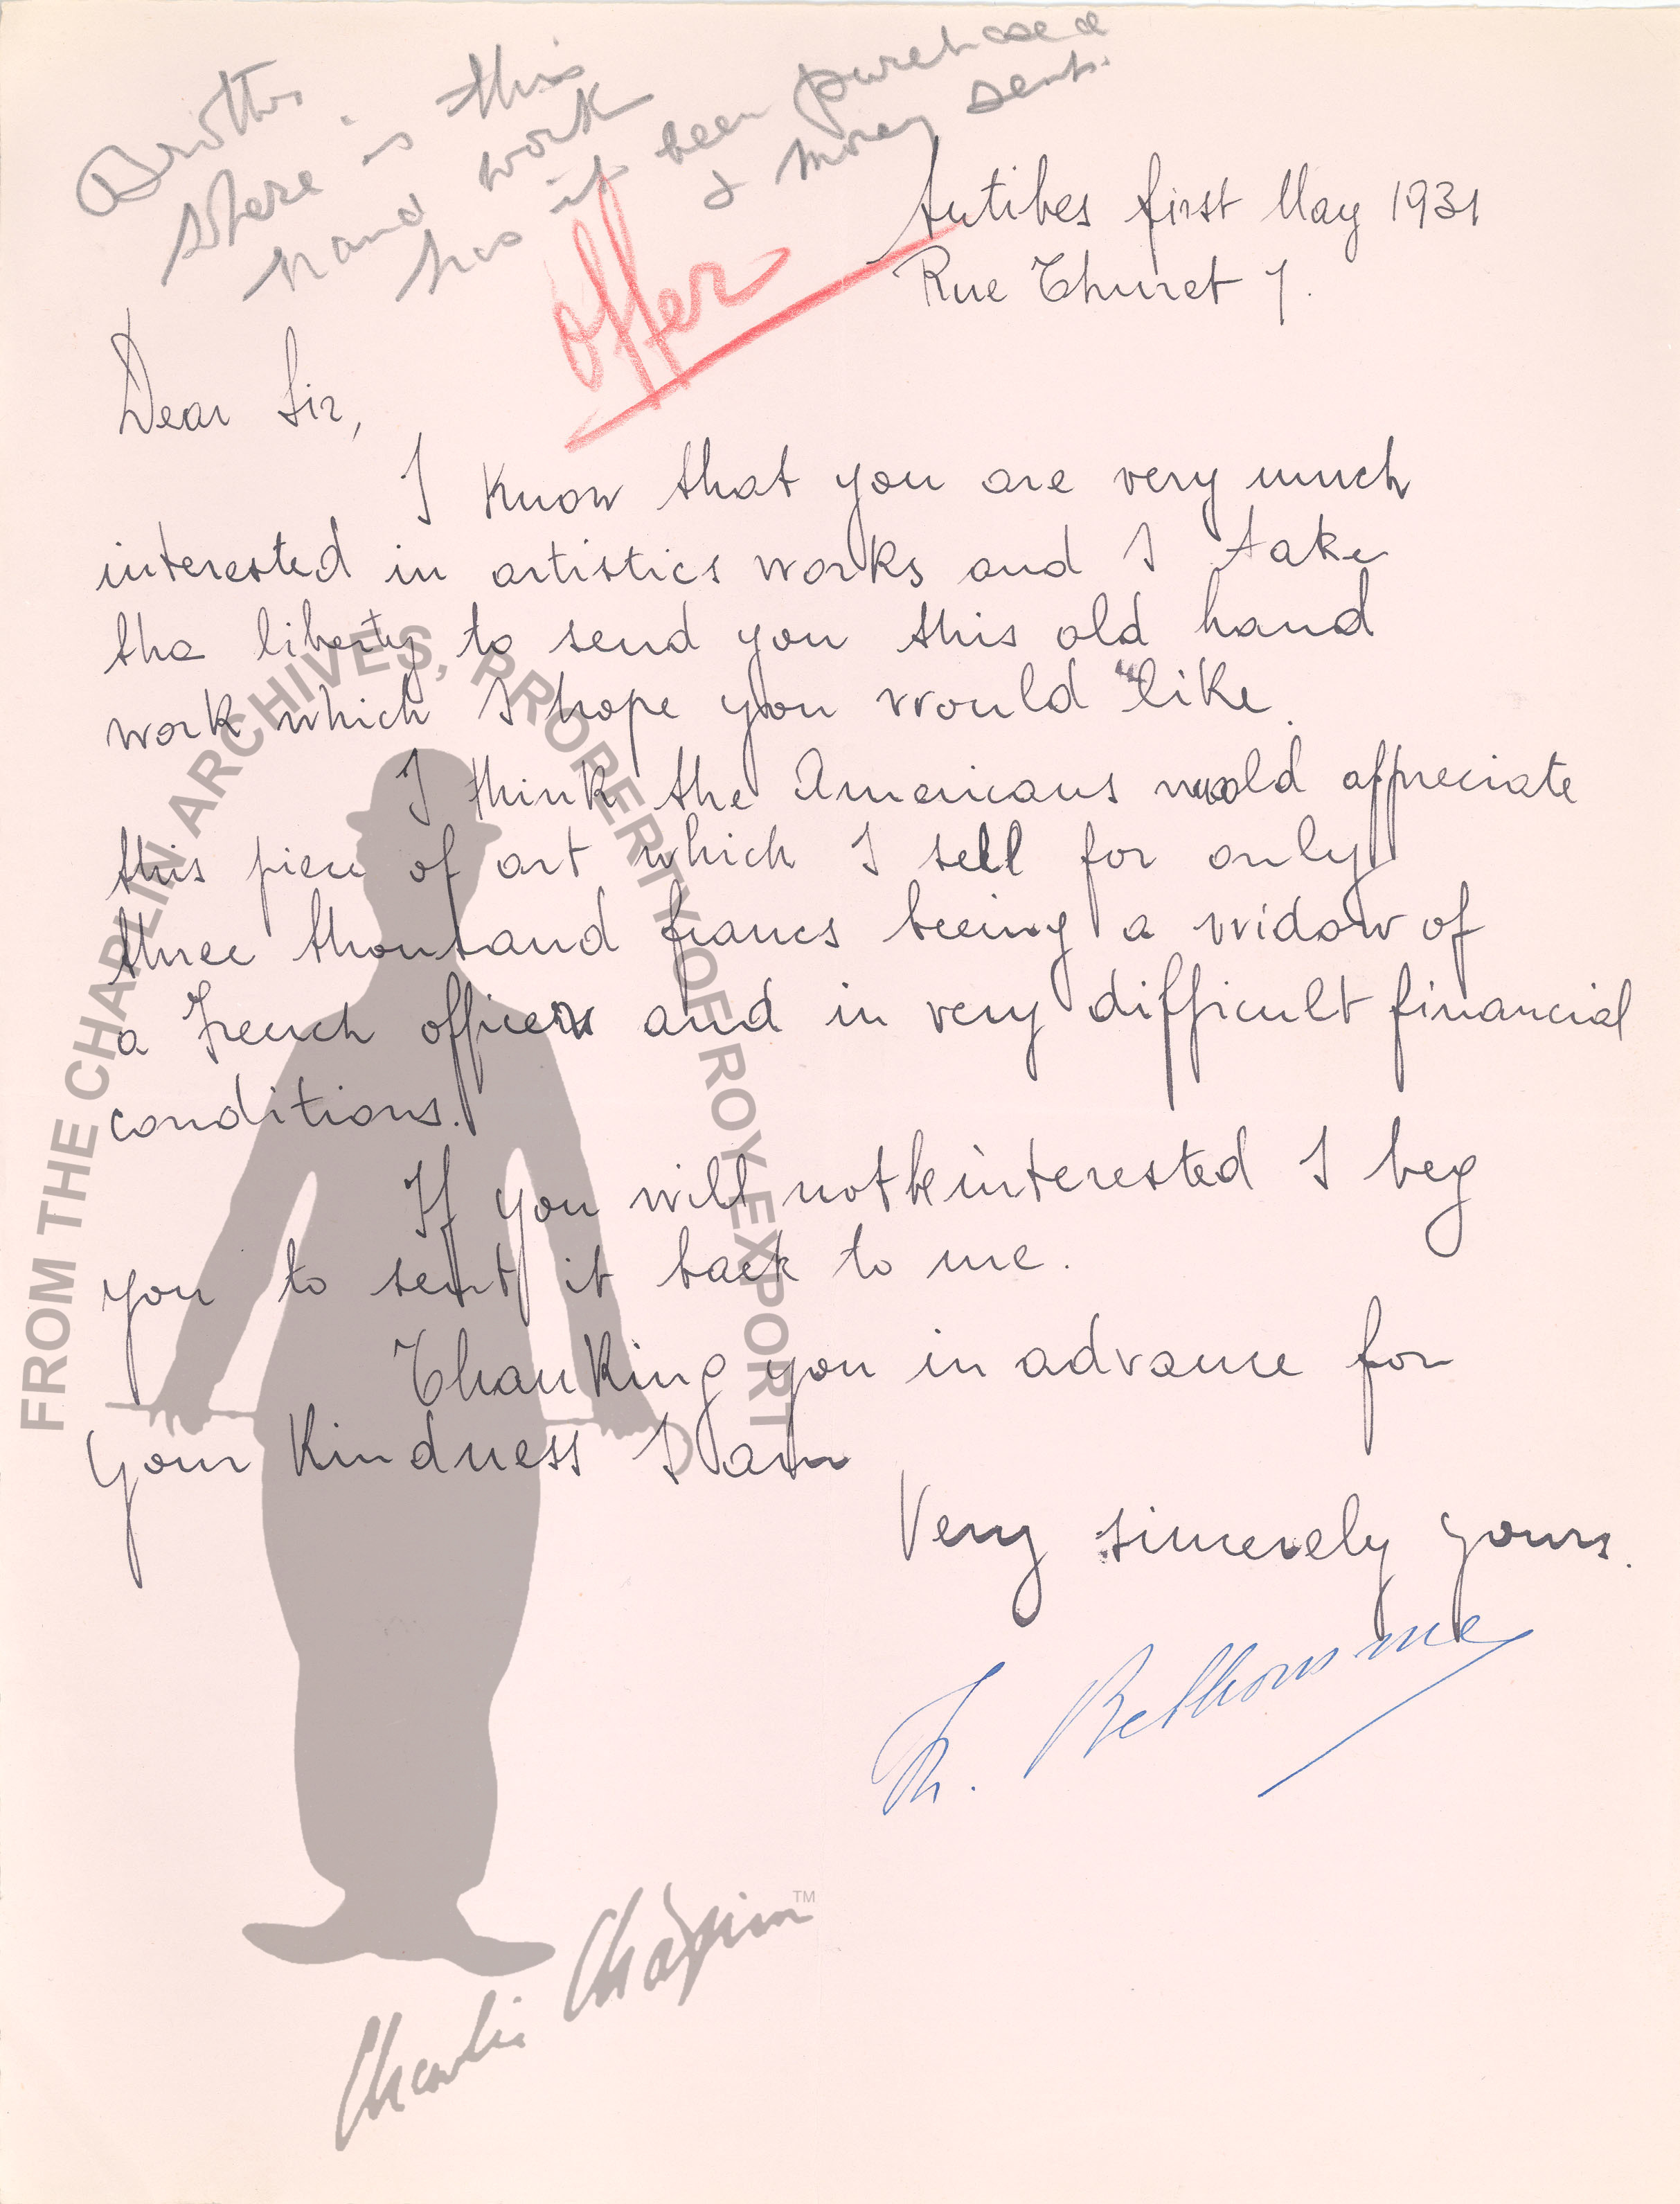 where is this
hand work
has it been purchased
& money sent.
offer
Antibes first May 1931
Rue Thuret 7.
Dear Sir,
I know that you are very much
interested in artistics works and I take
the liberty to send you this old hand
work which I hope you would like.
I think the Americans would appreciate
this piece of art which I sell for only
three thousand francs beeing a widow of
a French officer and in very difficult financial
conditions.
If you will not be interested I beg
you to sent it back to me.
Thanking you in advance for
your kindness I am
Very sincerely yours.
FROM THE CHAPLIN ARCHIVES, PROPERTY OF ROY EXPORT
Charlie Chaplin ™